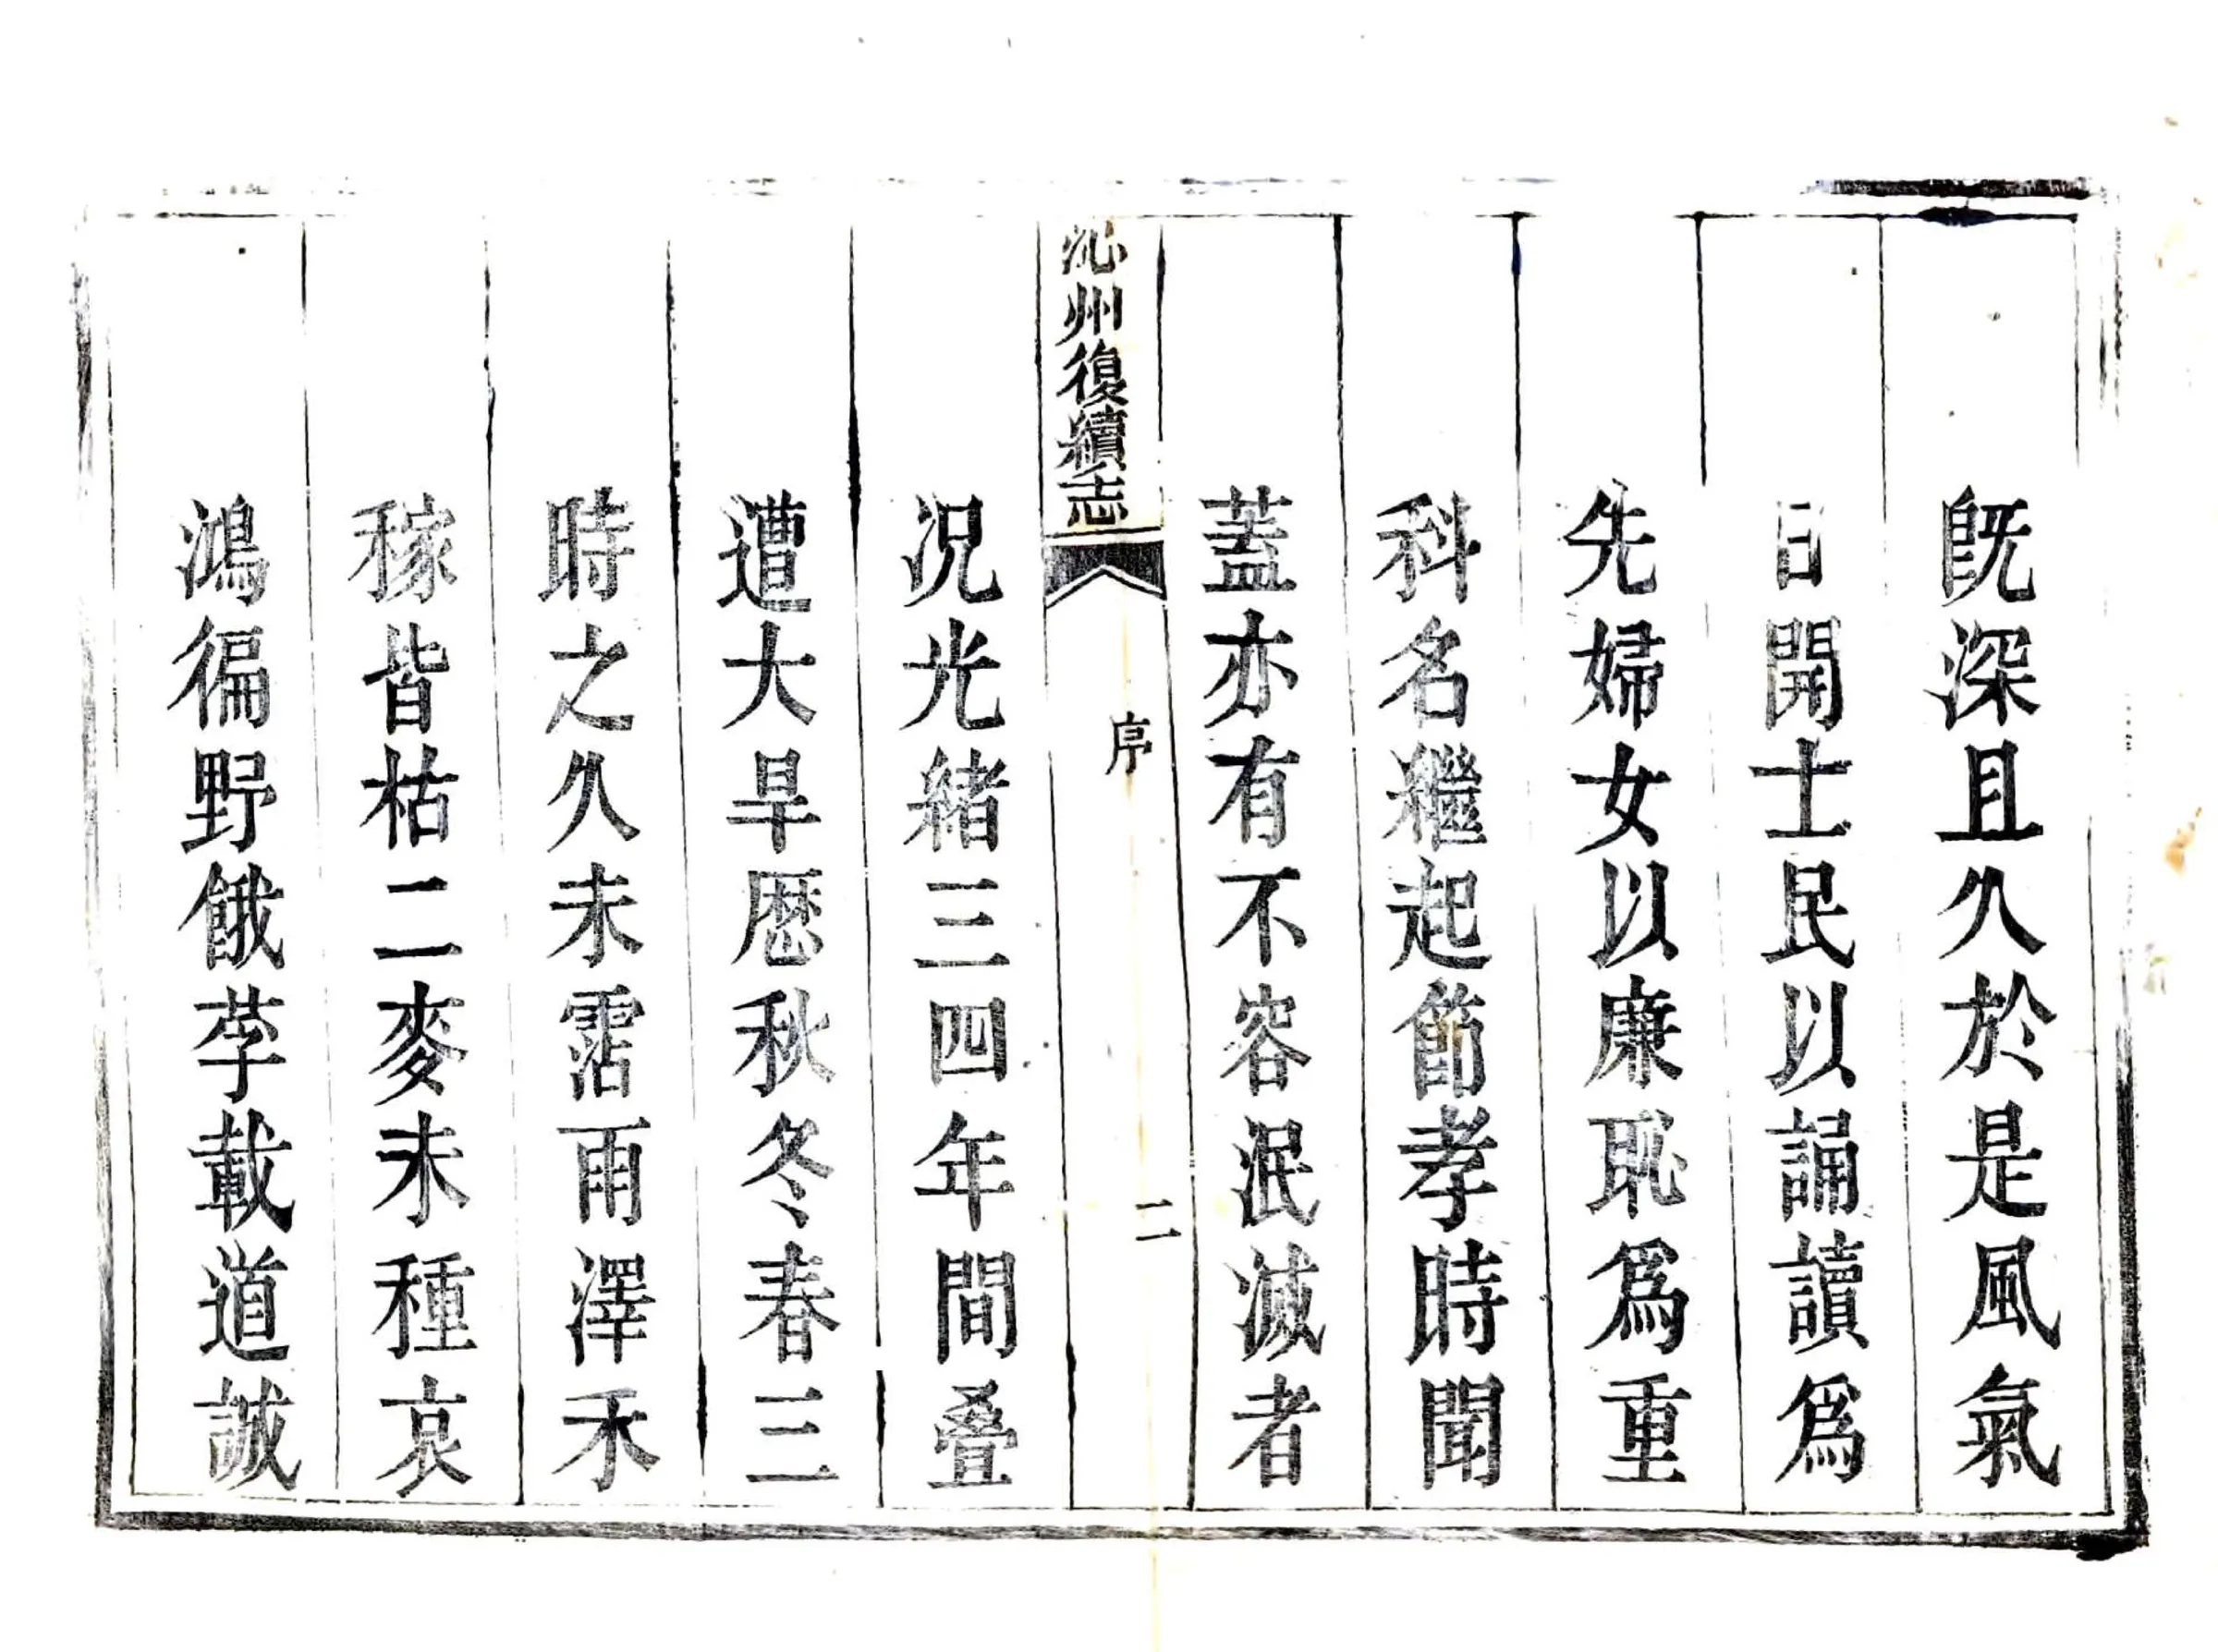 既深且久於是風氣
日開士民以誦讀爲
先婦女以廉恥爲重
科名繼起節孝時聞
蓋亦有不容泯滅者
沁州復續志
序
二
况光緒三四年間叠
遭大旱歴秋冬春三
時之久未霑雨澤禾
稼皆枯二麥未種哀
鴻徧野餓莩載道誠